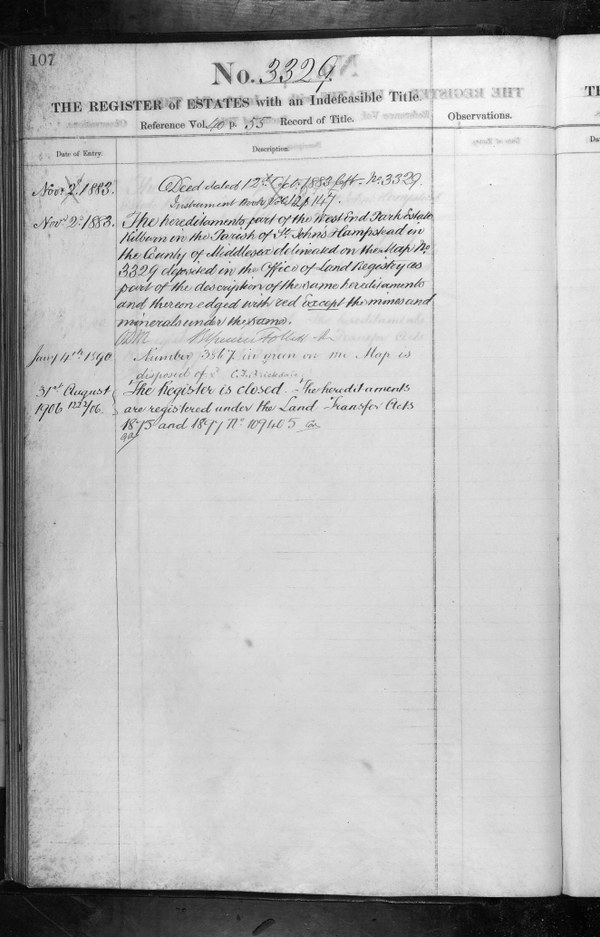 107
No. 3329.
THE REGISTER of ESTATES with an Indefeasible Title.
Reference Vol. 40 p. 55 Record of Title.
Observations.
Date of Entry.
Description
Novr 2d 1883.
Deed dated 12th Octr 1883 Cft. No. 3329.
Instrument Book p 147.
Novr 2d 1883.
The hereditaments part of the West End Park Estate
Kilburn in the Parish of St. John's Hampstead in
the County of Middlesex delineated on the Map No.
3329 deposited in the Office of Land Registry as
part of the description of the same hereditaments
and thereon edged with red Except the mines and
minerals under the same.
Follett
Jany 4th 1890
Number 3867 in green on the Map is
disposed of
31st August
1906
The Register is closed. The hereditaments
are registered under the Land Transfer Acts
1875 and 1897 No. 109405
TH
Da